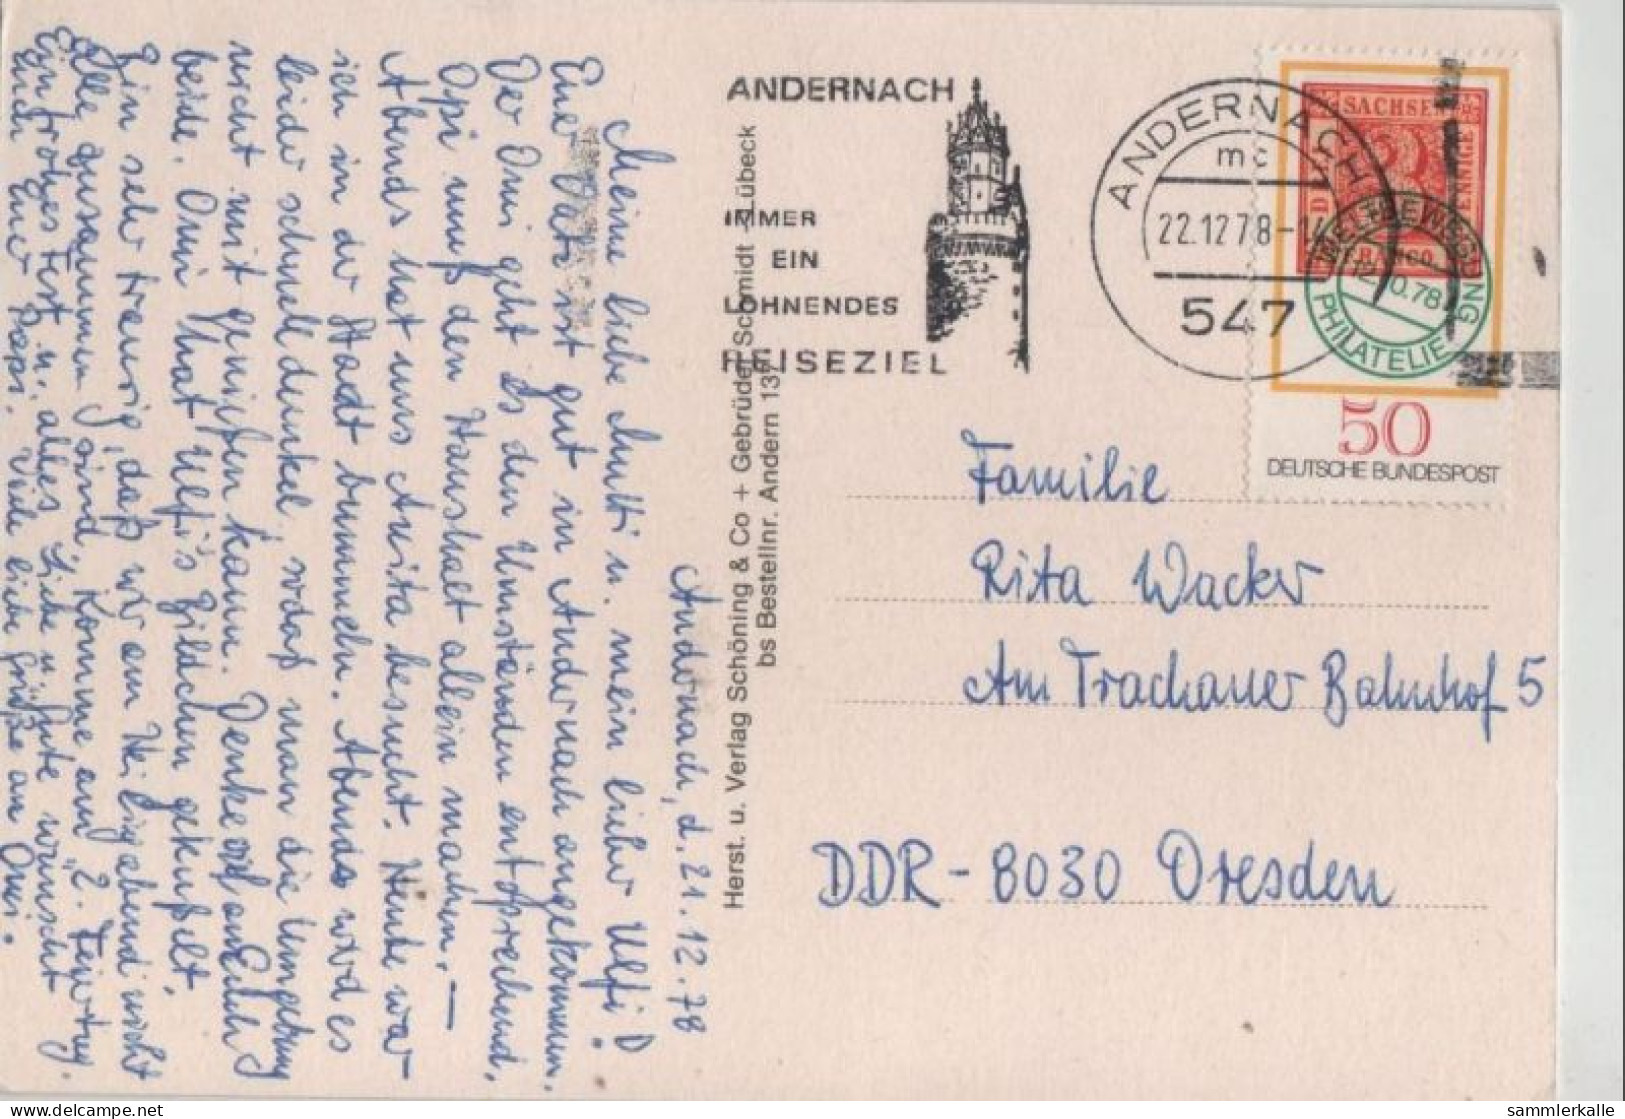 Andernach, d. 21.12.78
Meine liebe Mutti u. mein lieber Ulfi!
Euer Vati ist gut in Andernach angekommen.
Der Omi geht es den Umständen entsprechend.
Opi muß den Haushalt allein machen. –
Abends hat uns Anita besucht. Heute war
ich in der Stadt bummeln. Abends wird es
leider schnell dunkel, sodaß man die Umgebung
nicht mit genießen kann. Denke oft an Euch
beide. Omi hat Ulfi's Bildchen geküßelt.
Bin sehr traurig, daß wir am Heiligabend nicht
alle zusammen sind. Komme am 2. Feiertag.
Ein frohes Fest u. alles Liebe u. Gute wünscht
Euch Euer Papi. Viele liebe Grüße an Omi.
Herst. u. Verlag Schöning & Co + Gebrüder Schmidt - Lübeck
bs Bestellnr. Andern 13
ANDERNACH
IMMER
EIN
LOHNENDES
REISEZIEL
ANDERNACH
mc
22.12.78-
547
SACHSEN
3
PFENNIGE
FRANCO
WELTBEWEGUNG
12.10.78
PHILATELIE
50
DEUTSCHE BUNDESPOST
Familie
Rita Wacker
Am Trachauer Bahnhof 5
DDR - 8030 Dresden
sammlerkalle